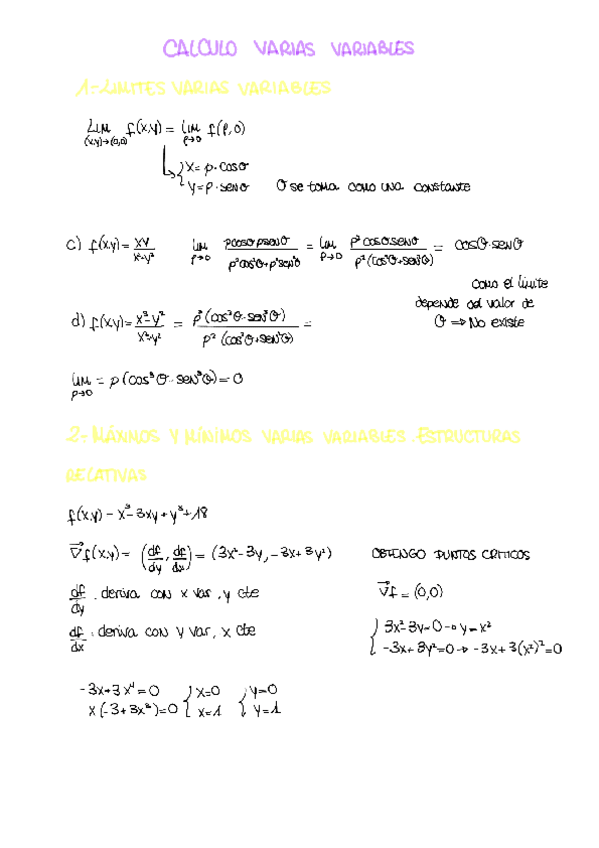 CALCULO VARIAS VARIABLES
1-LIMITES VARIAS VARIABLES
Lim (x,y)→(0,0) f(x,y) = Lim ρ→0 f(ρ,θ)
x = ρ·cosθ
y = ρ·senθ θ se toma como una constante
c) f(x,y) = xy/x²+y² Lim ρ→0 ρcosθρsenθ/ρ²cos²θ+ρ²sen²θ = Lim ρ→0 ρ²cosθsenθ/ρ²(cos²θ+sen²θ) = cosθ·senθ
como el límite
depende del valor de
θ ⇒ No existe
d) f(x,y) = x³-y³/x²+y² = ρ³(cos³θ-sen³θ)/ρ²(cos²θ+sen²θ) =
Lim ρ→0 = ρ(cos³θ-sen³θ) = 0
2- MÁXIMOS Y MÍNIMOS VARIAS VARIABLES. ESTRUCTURAS
RELATIVAS
f(x,y) = x³-3xy+y³+18
∇f(x,y) = (df/dy, df/dx) = (3x²-3y, -3x+3y²) OBTENGO PUNTOS CRITICOS
df/dy : deriva con x var, y cte ∇f = (0,0)
df/dx : deriva con y var, x cte
3x²-3y=0 → y=x²
-3x+3y²=0 → -3x+3(x²)²=0
-3x+3x⁴=0 x=0 y=0
x(-3+3x³)=0 x=1 y=1